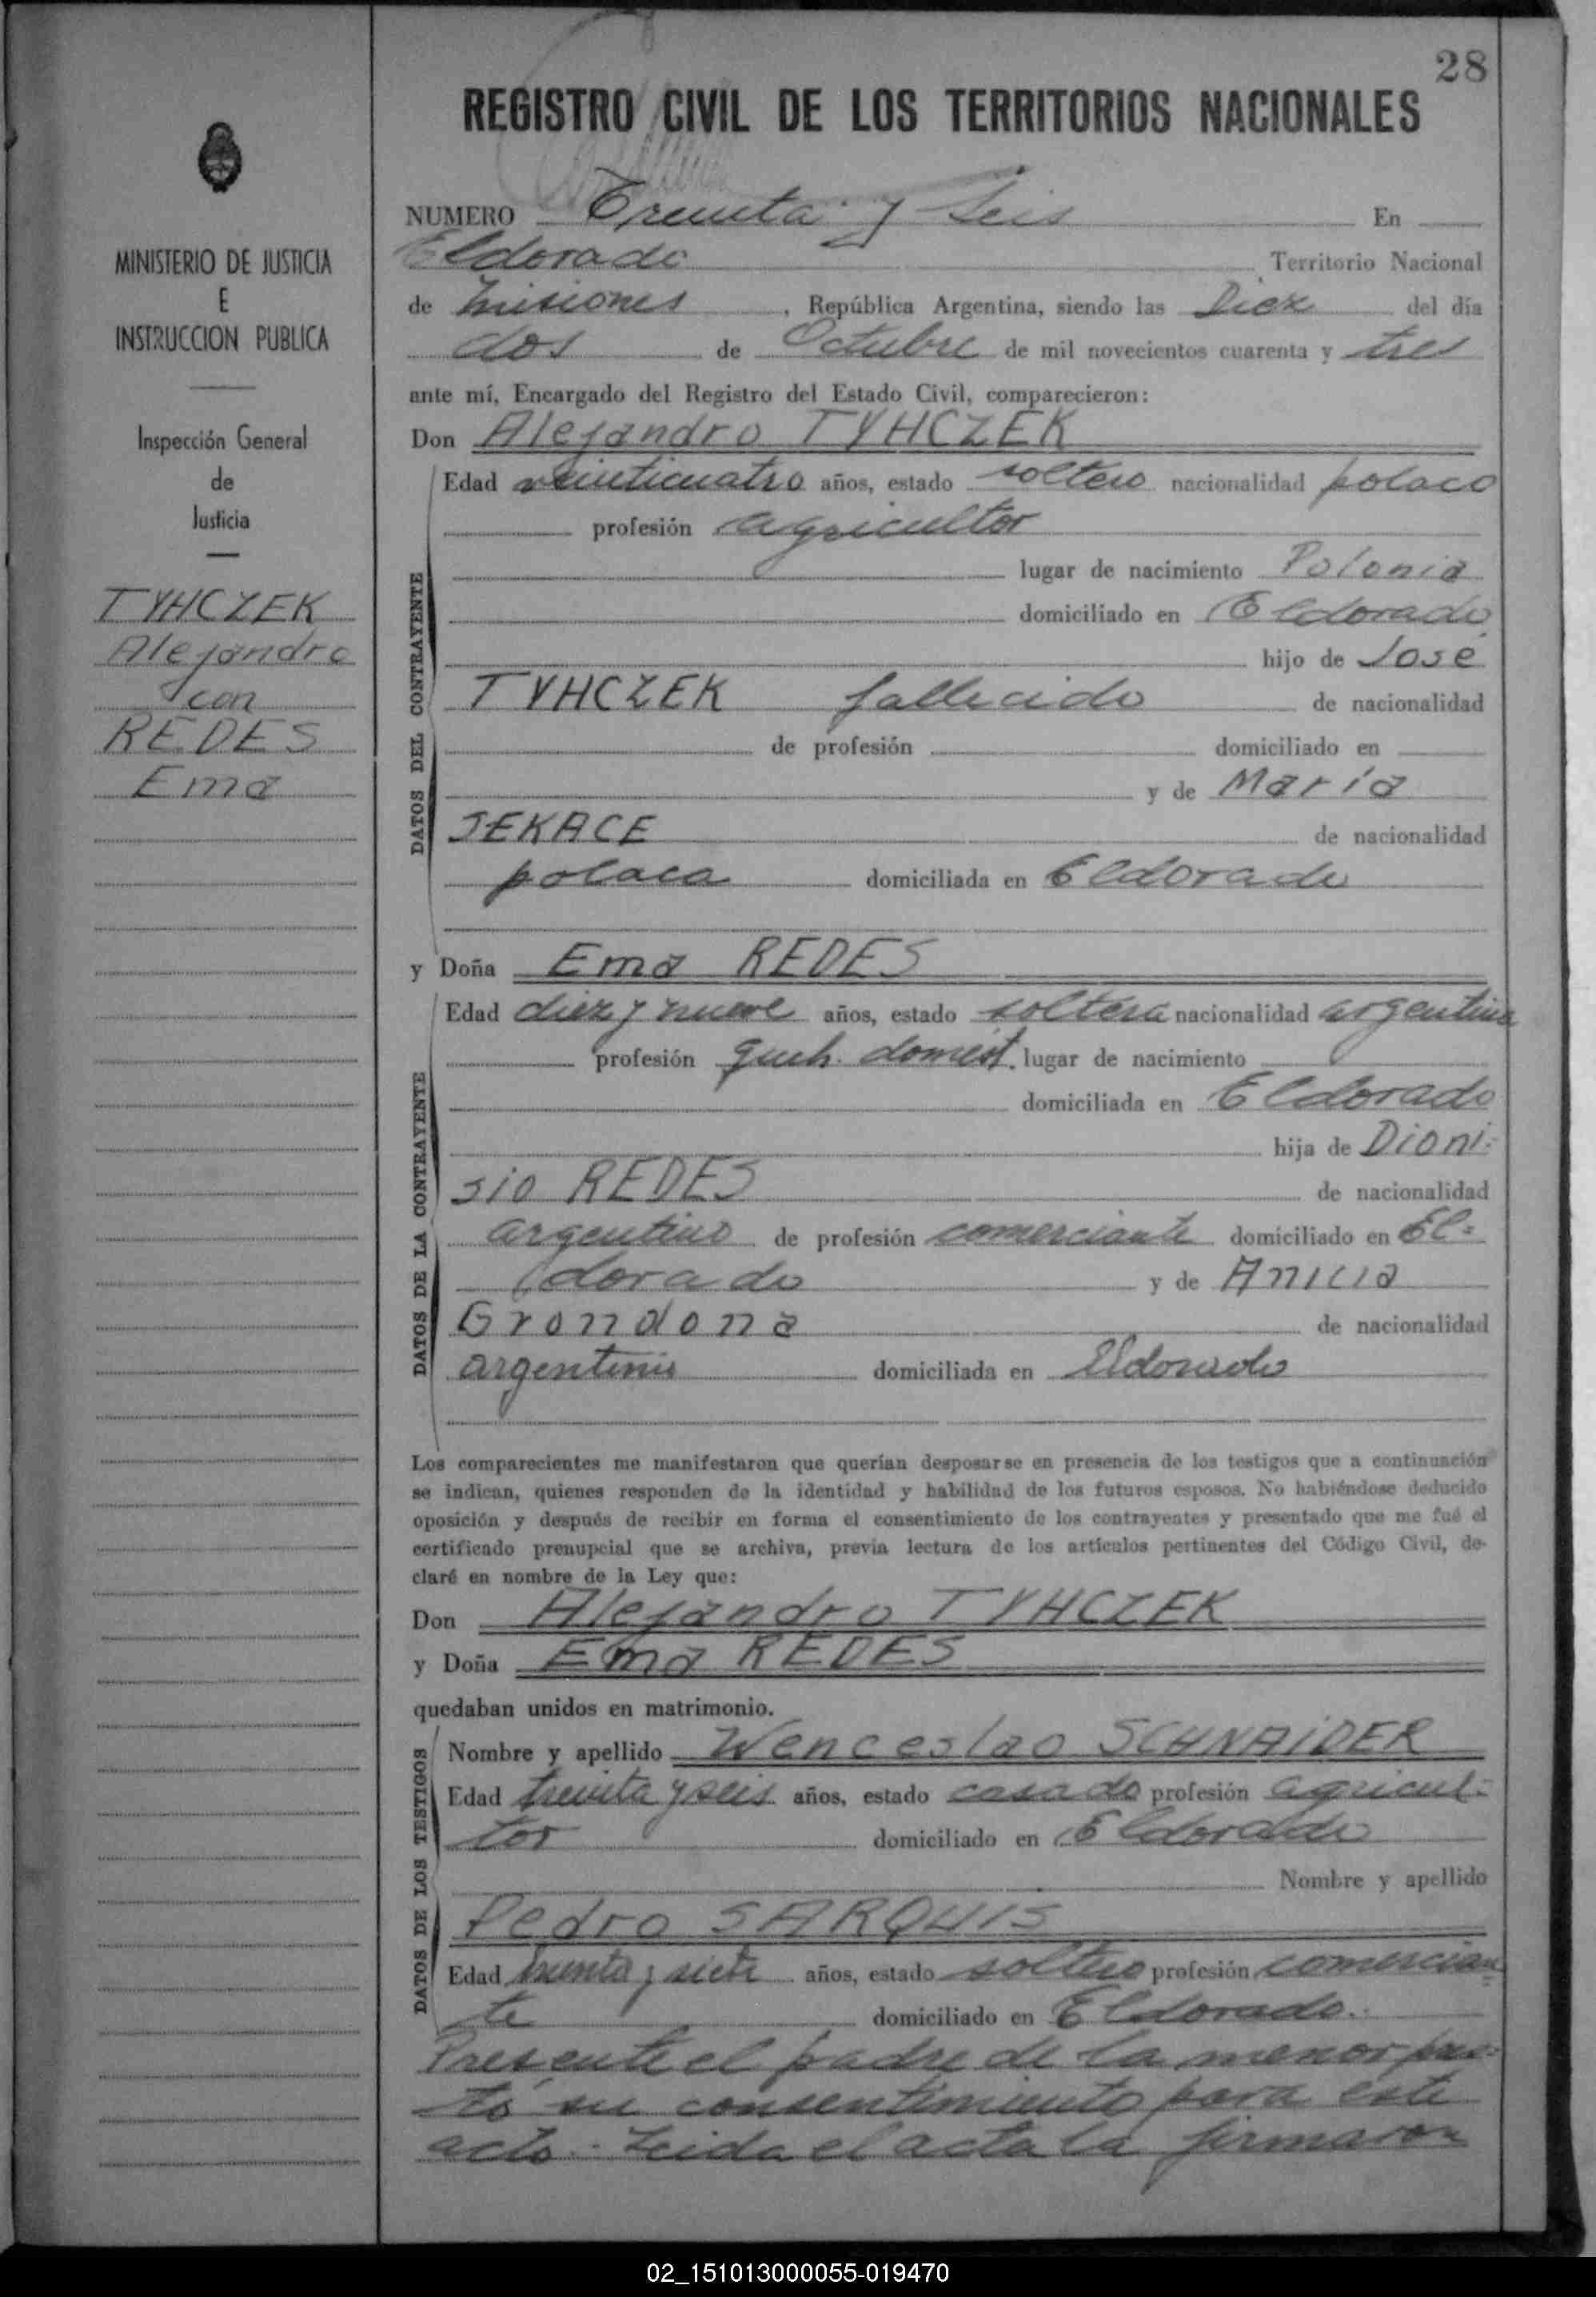 28
REGISTRO CIVIL DE LOS TERRITORIOS NACIONALES
MINISTERIO DE JUSTICIA
E
INSTRUCCION PUBLICA
Inspección General
de
Justicia
TYHCZEK
Alejandro
con
REDES
Ema
NUMERO Treinta y Seis En
Eldorado Territorio Nacional
de Misiones, República Argentina, siendo las Diez del día
dos de Octubre de mil novecientos cuarenta y tres
ante mí, Encargado del Registro del Estado Civil, comparecieron:
Don Alejandro TYHCZEK
DATOS DEL CONTRAYENTE
Edad veinticuatro años, estado soltero nacionalidad polaco
profesión agricultor
lugar de nacimiento Polonia
domiciliado en Eldorado
hijo de José
TYHCZEK fallecido de nacionalidad
de profesión domiciliado en
y de María
SEKACE de nacionalidad
polaca domiciliada en Eldorado
y Doña Ema REDES
DATOS DE LA CONTRAYENTE
Edad diez y nueve años, estado soltera nacionalidad argentina
profesión queh. domést. lugar de nacimiento
domiciliada en Eldorado
hija de Dioni-
sio REDES de nacionalidad
argentino de profesión comerciante domiciliado en El-
dorado y de Anicia
Grondona de nacionalidad
argentina domiciliada en Eldorado
Los comparecientes me manifestaron que querían desposarse en presencia de los testigos que a continuación
se indican, quienes responden de la identidad y habilidad de los futuros esposos. No habiéndose deducido
oposición y después de recibir en forma el consentimiento de los contrayentes y presentado que me fué el
certificado prenupcial que se archiva, previa lectura de los artículos pertinentes del Código Civil, de-
claré en nombre de la Ley que:
Don Alejandro TYHCZEK
y Doña Ema REDES
quedaban unidos en matrimonio.
DATOS DE LOS TESTIGOS
Nombre y apellido Wenceslao SCHNAIDER
Edad treinta y seis años, estado casado profesión agricul-
tor domiciliado en Eldorado
Nombre y apellido
Pedro SARQUIS
Edad treinta y siete años, estado soltero profesión comercian
te domiciliado en Eldorado.
Presente el padre de la menor pres-
tó su consentimiento para este
acto.- Leida el acta la firmaron
02_151013000055-019470